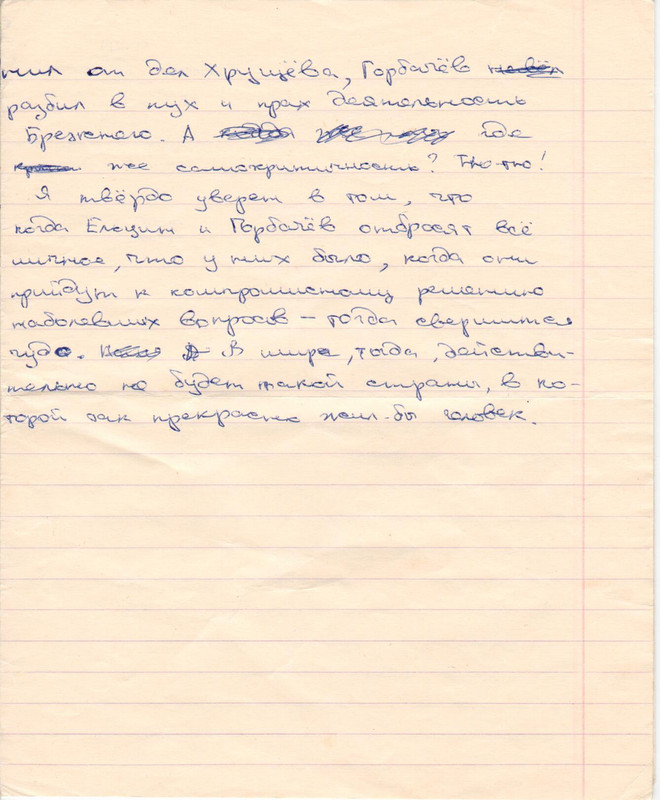 нил от дел Хрущёва, Горбачёв
разбил в пух и прах деятельность
Брежнего. А где
же самокритичность? Тю-тю!
Я твёрдо уверен в том, что
когда Ельцин и Горбачёв отбросят всё
личное, что у них было, когда они
прийдут к компромисному решению
наболевших вопросов – тогда свершится
чудо. В мире, тогда, действи-
тельно не будет такой страны, в ко-
торой так прекрасно жил-бы человек.